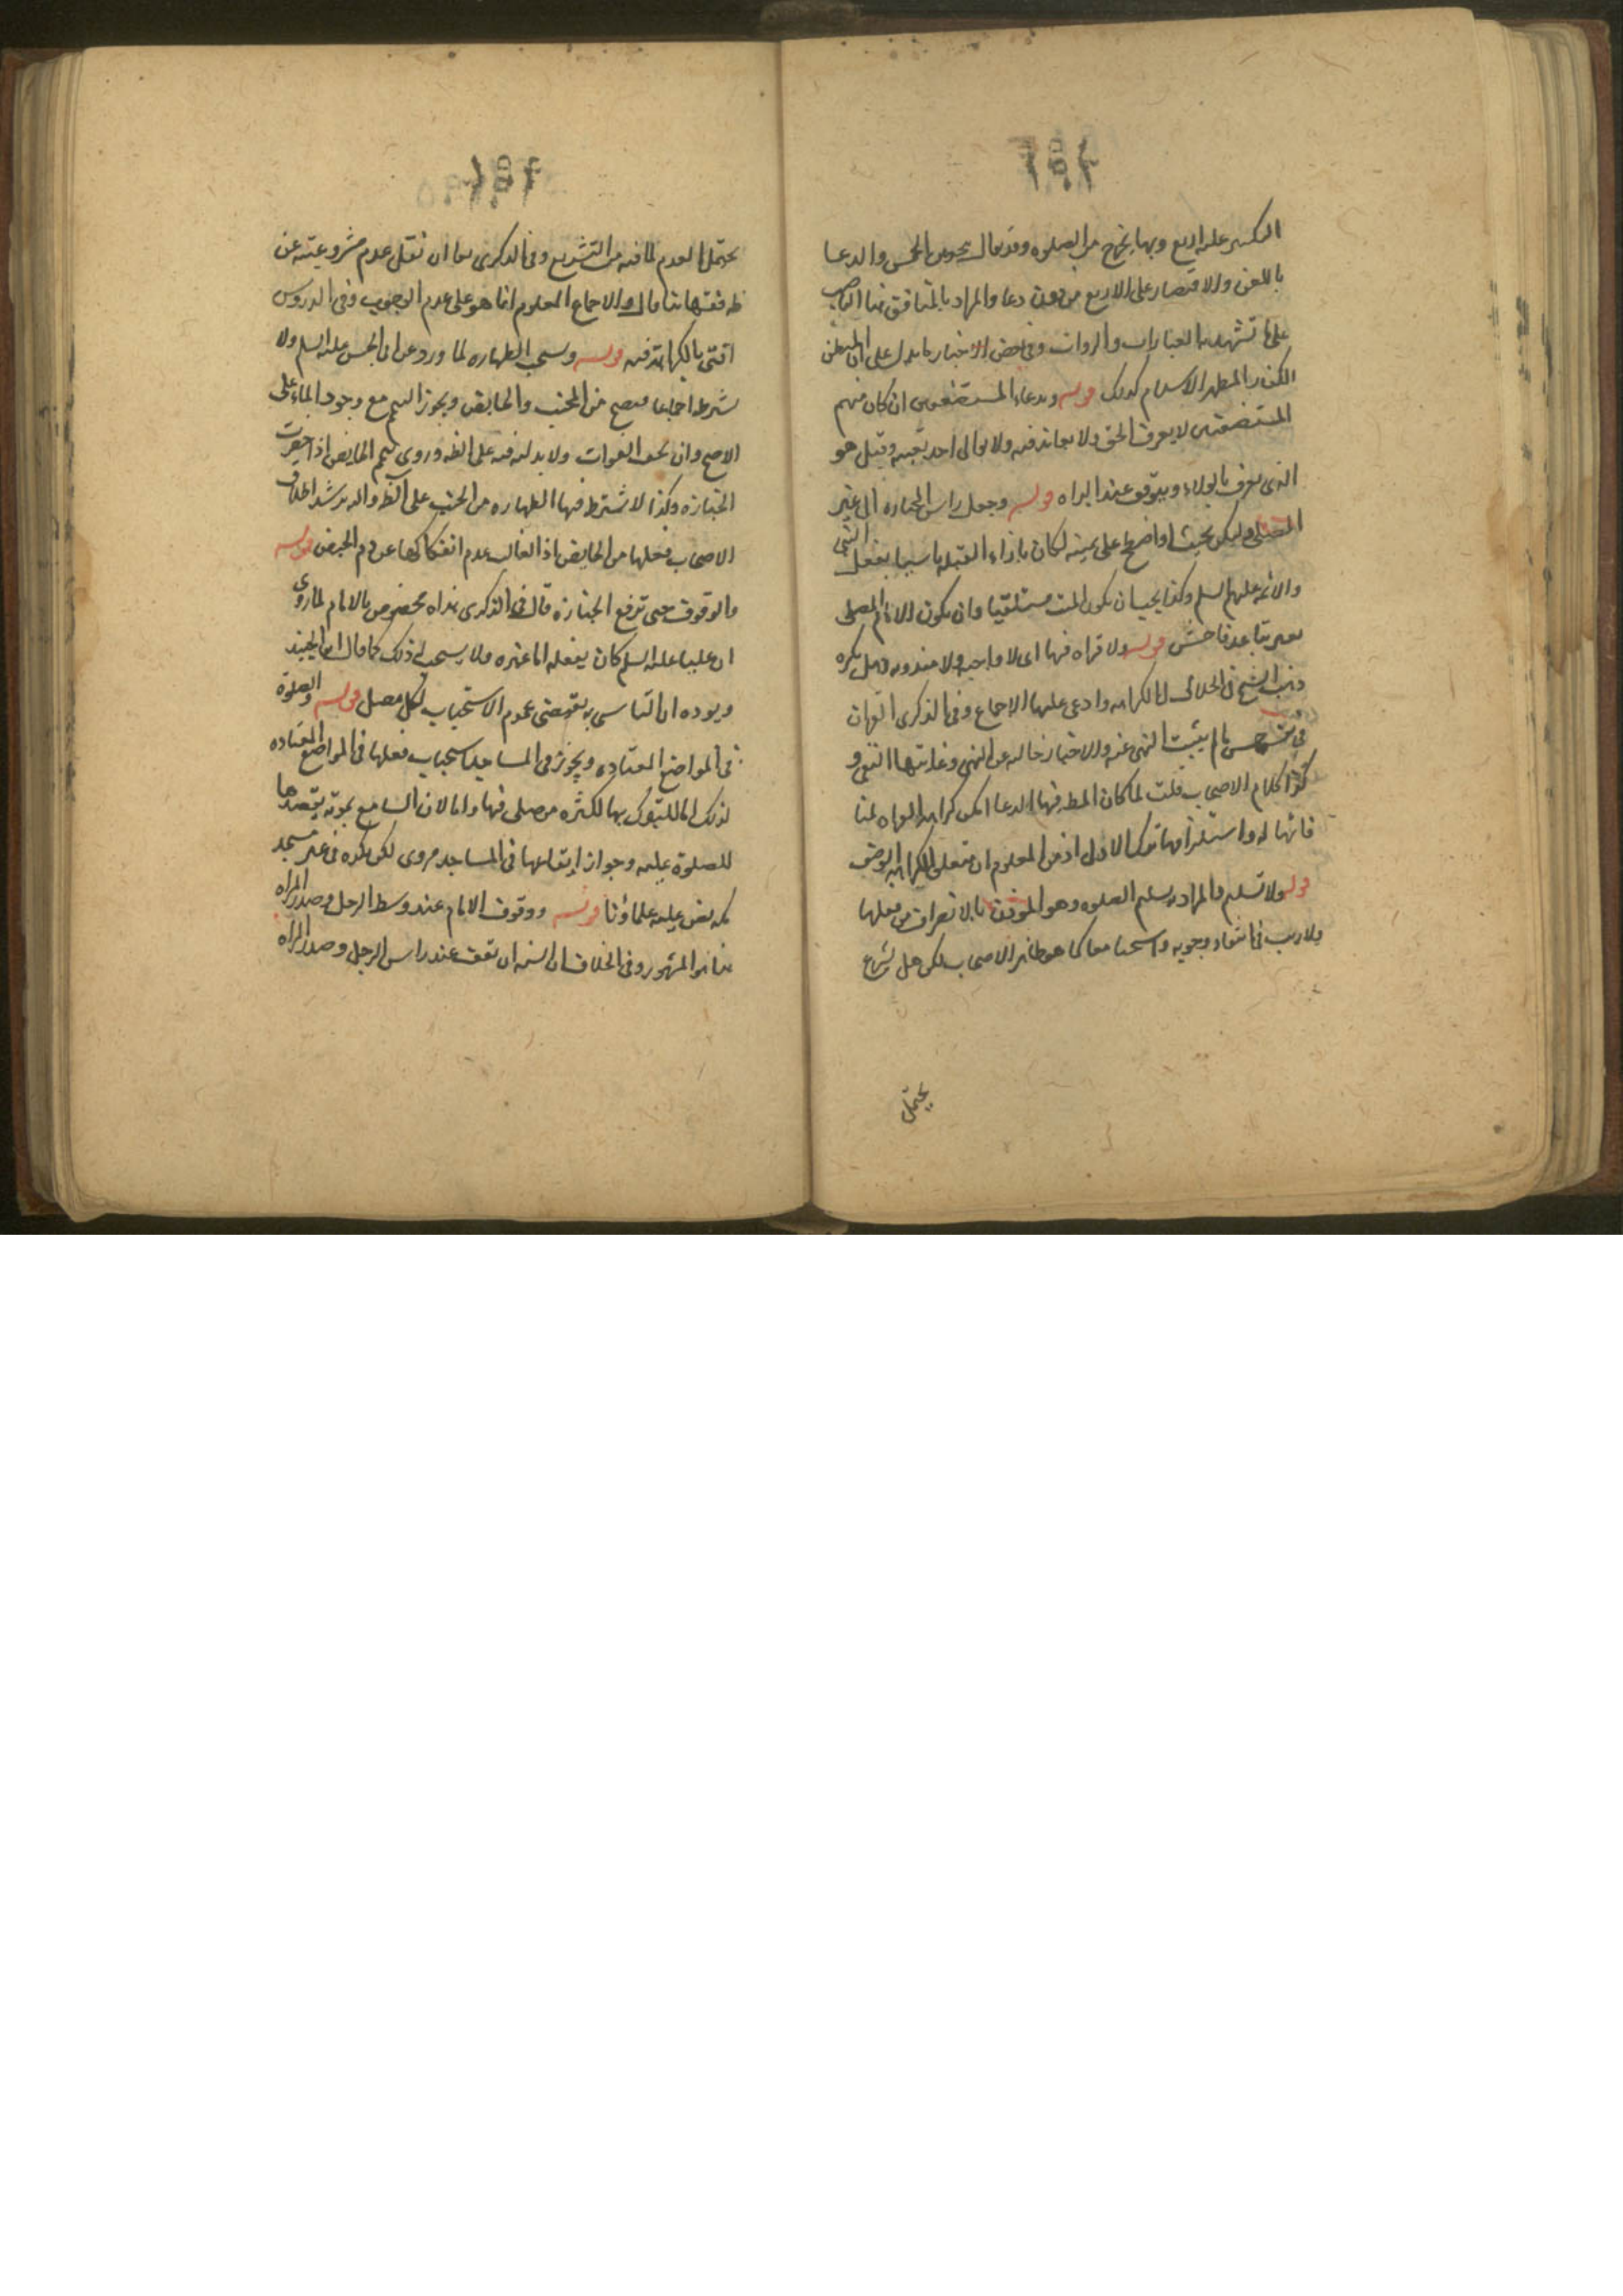 التكبير عليه اربع وبها يخرج من الصلوه وقد يقال بوجوب الخمس والدعا
باللعن والاقتصار على الاربع من دون دعا والمراد بالمنافق هنا الناصب
على ما تشهد به العبارات والروايات وفي بعض الاخبار ما يدل على ان المبطن
للكفر المظهر للاسلام كذلك قوله وبدعاء المستضعفين ان كان منهم
المستضعف من لا يعرف الحق ولا يعاند فيه ولا يوالى احد بعينه وقيل هو
الذى يعرف بالولاء ويتوقف عند البراه قوله وجعل راس الجنازه الى غير
المصلى وليكن بحيث لو اضجع على يمينه لكان بازاء القبله تاسيا بفعل النبي
والائمه عليهم السلم وكذا يجب ان يكون الميت مستلقيا وان يكون الامام المصلى
بغير تباعد فاحش قوله ولا قراه فيها اى لا واجبه ولا مندوبه وهل يكره
ذهب الشيخ في الخلاف الى الكراهه وادعى عليها الاجماع وفى الذكرى القران
في نفسه حسن ما لم يثبت النهى عنه والاخبار خاليه عن النهى وغايتها النفى و
كذا كلام الاصحاب قلت لما كان المطه فيها الدعا امكن كراهه القراه لمنا
فاتها له واستلزامها ترك الاولى اذ من المعلوم ان متعلق الكراهه الوصف
قوله ولا تسليم والمراد به تسليم الصلوه وهو الموذن بالانصراف من فعلها
ولا ريب في انتفاء وجوبه واستحبابه معا كما هو ظاهر الاصحاب لكن هل يشرع
يحتمل
يحتمل العدم لما فيه من التشريع وفي الذكرى بعد ان نقل عدم مشروعيته عن
ظه فقهائنا قال والاجماع المعلوم انما هو على عدم الوجوب وفى الدروس
افتى بالكراهه فيه قوله ويستحب الطهاره لما ورد عن ابى الحسن عليه السلم ولا
يشرط اجماعا فيصح من الجنب والحايض ويجوز التيمم مع وجود الماء على
الاصح وان لم يخف الفوات ولا بد ليه فيه على الظه وروى تيمم الحايض اذا حضرت
الجنازه وكذا لا يشترط فيها الطهاره من الخبث على الظه واليه يرشد اطلاق
الاصحاب فعلها من الحايض اذ الغالب عدم انفكاكها عن دم الحيض قوله
والوقوف حتى ترفع الجنازه قال في الذكرى نراه مخصوص بالامام لما روى
ان عليا عليه السلم كان يفعله اما غيره ولا يستحب له ذلك كما قال ابن الجنيد
ويرده ان التاسى به يقتضى عموم الاستحباب لكل مصل قوله والصلوة
في المواضع المعتاده ويجوز في المساجد استحباب فعلها في المواضع المعتاده
لذلك اما للتبرك بها لكثره من صلى فيها واما لان السامع بموته يقصدها
للصلوة عليه وجواز ايقاعها في المساجد مروى لكن يكره في غير مسجد
مكه نص عليه علماؤنا قوله ووقوف الامام عند وسط الرجل وصدر المراه
هذا هو المشهور وفي الخلاف ان السنه ان تقف عند راس الرجل وصدر المراه